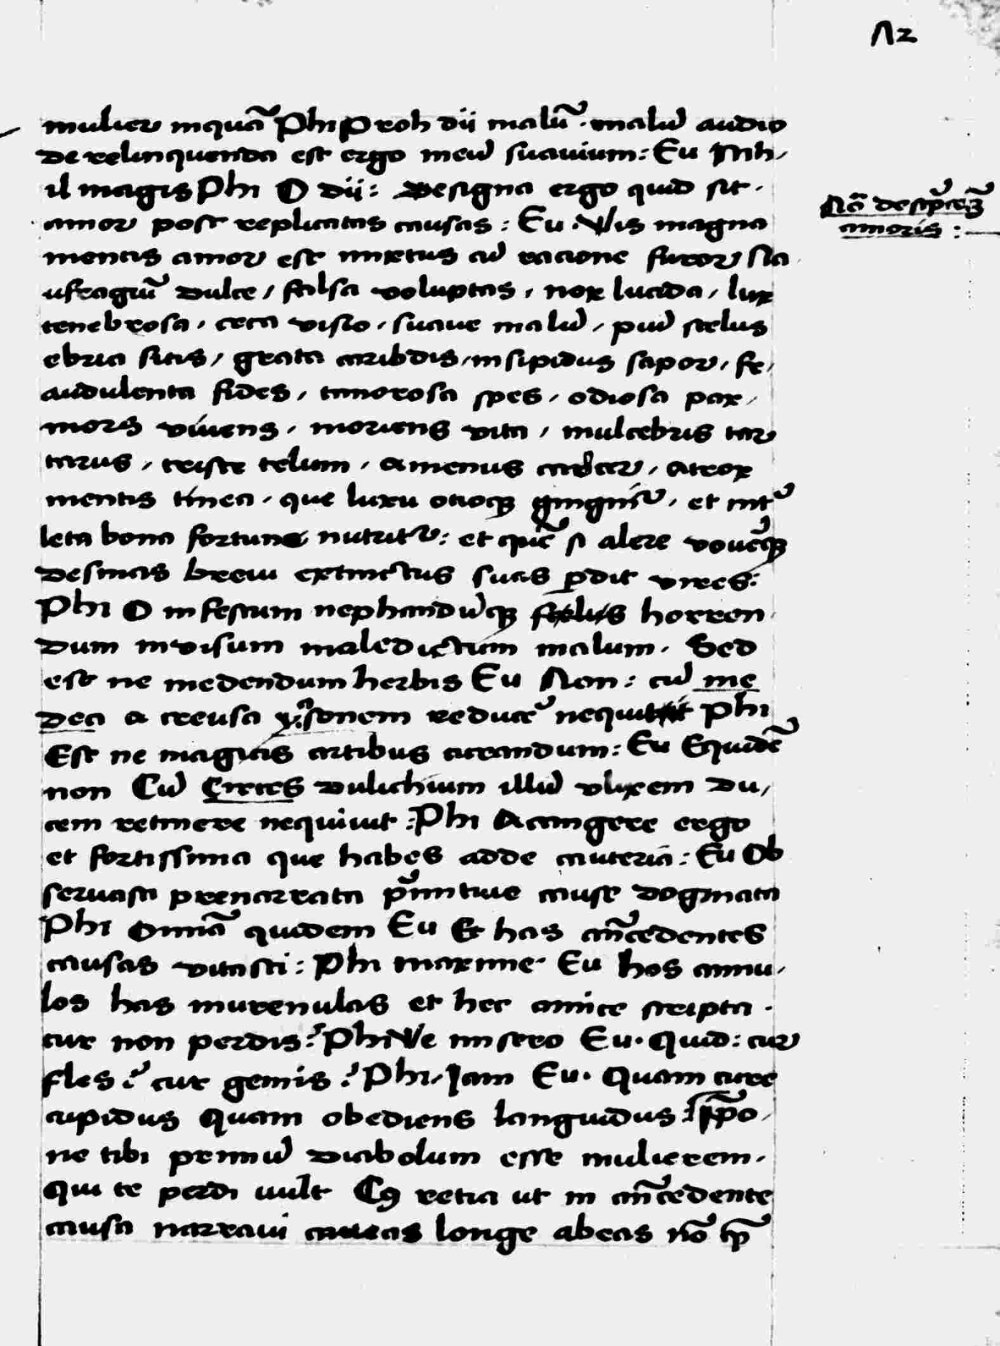 Λ2
mulier inquā Phi Proh dii malū. malū audio
de relinquenda est ergo meū suauium: Eu Nih,
il magis Phi O dii: Designa ergo quid sit.
amor post replicatas causas: Eu. Vis magna
Nō descriptōeꝫ
amoris:
mentis amor est mixtus cū racione furor Na
ufragiū dulce, falsa voluptas, nox lucida, lux
tenebrosa, ceca visio, suaue malū, piū scelus
ebria sitis, grata caribdis, insipidus sapor, fr,
audulenta fides, timorosa spes, odiosa pax,
mors viuens, moriens vita, mulcebris tar
tarus, triste telum, amenus carcer, atrox
mentis tinea, que luxu ociocꝫ gingnit᷑, et int᷑
leta bona fortune nutrit᷑: et quē si alere vouecꝫ
desinas breui extinctus suas ꝑdit vires:
Phi O infestum nephandūcꝫ horren
dum inuisum maledictum malum. Sed
est ne medendum herbis Eu Non: cū me
dea a creusa ysonem reducer᷑ nequit Phi
Est ne magicis artibus curandum: Eu Equidē
non Cū Circes dulichium illū vlixem du,
cem retinere nequiuit: Phi Accingere ergo
et fortissima que habes adde cauteria: Eu Ob
seruasti prenarrata pͥmitiue cause dogmata
Phi Omnia quidem Eu Et has an̄cedentes
causas vitasti: Phi maxime. Eu hos annu,
los has murenulas et hec amice scripta.
cur non perdis? Phi Ve misero Eu. Quid: cur
fles? cur gemis? Phi. Iam Eu. Quam cure
cupidus quam obediens languidus: Ppo,
ne tibi primū diabolum esse mulierem.
qui te perdi vult Cꝯ retia ut in an̄cedente
causa narraui caueas longe abeas nō